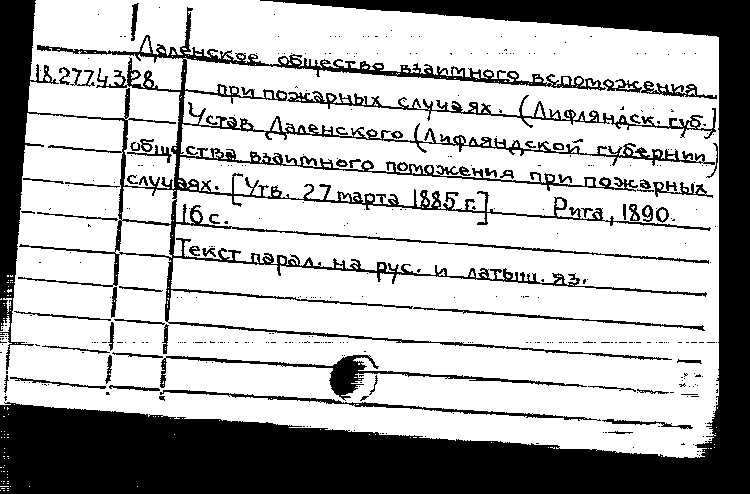 Даленское общество взаимного вспоможения
18.277.4.328. при пожарных случаях. (Лифляндск. губ.)
Устав Даленского (Лифляндской губернии)
общества взаимного поможения при пожарных
случаях. [Утв. 27 марта 1885 г.]. Рига, 1890.
16 с.
Текст парал. на рус. и латыш. яз.